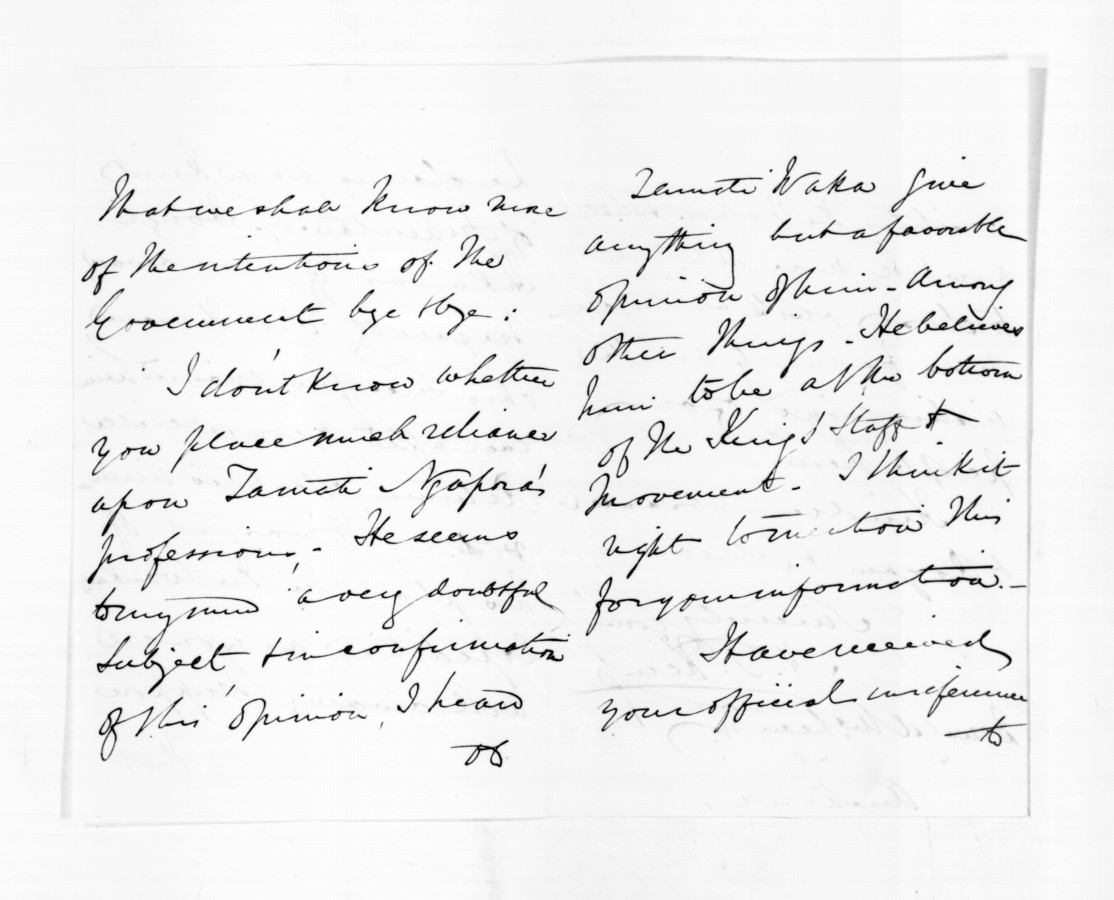 that we shall know more
of the intentions of the
Government bye & bye.
I don't know whether
you place much reliance
upon Tamati Ngapora's
professions,- He seems
to my mind a very doubtful
subject & in confirmation
of this opinion, I heard
Tamati Waka give
anything but a favorable
opinion of him - Among
other things - He believes
him to be at the bottom
of the King's Staff &
Movement - I think it
right to mention this
for your information. -
I have received
your official in reference
to